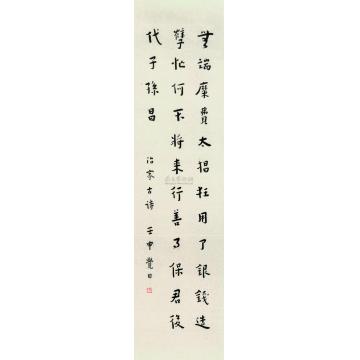 無端糜費太猖狂用了銀錢造
孽忙何不將来行善了保君後
代子孫昌
治家古詩 壬申 覺日